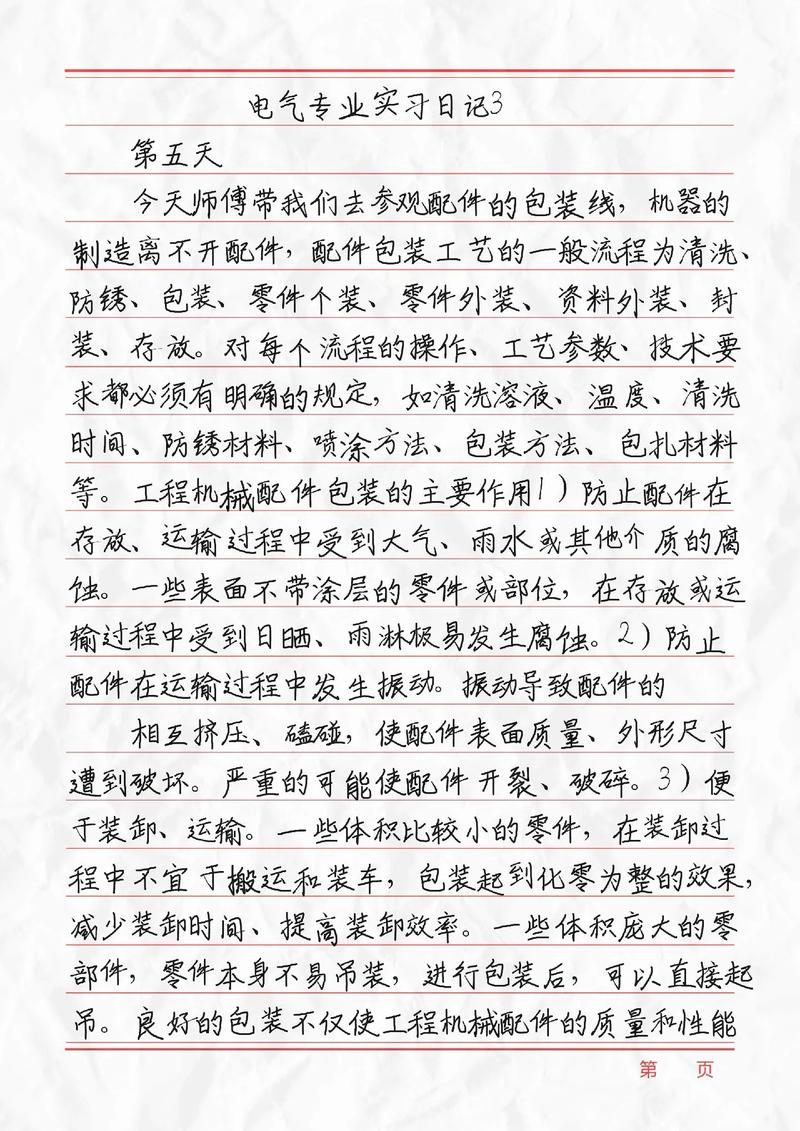 电气专业实习日记3
第五天
今天师傅带我们去参观配件的包装线，机器的
制造离不开配件，配件包装工艺的一般流程为清洗、
防锈、包装、零件个装、零件外装、资料外装、封
装、存放。对每个流程的操作、工艺参数、技术要
求都必须有明确的规定，如清洗溶液、温度、清洗
时间、防锈材料、喷涂方法、包装方法、包扎材料
等。工程机械配件包装的主要作用1）防止配件在
存放、运输过程中受到大气、雨水或其他介质的腐
蚀。一些表面不带涂层的零件或部位，在存放或运
输过程中受到日晒、雨淋极易发生腐蚀。2）防止
配件在运输过程中发生振动。振动导致配件的
相互挤压、磕碰，使配件表面质量、外形尺寸
遭到破坏。严重的可能使配件开裂、破碎。3）便
于装卸、运输。一些体积比较小的零件，在装卸过
程中不宜于搬运和装车，包装起到化零为整的效果，
减少装卸时间、提高装卸效率。一些体积庞大的零
部件，零件本身不易吊装，进行包装后，可以直接起
吊。良好的包装不仅使工程机械配件的质量和性能
第 页